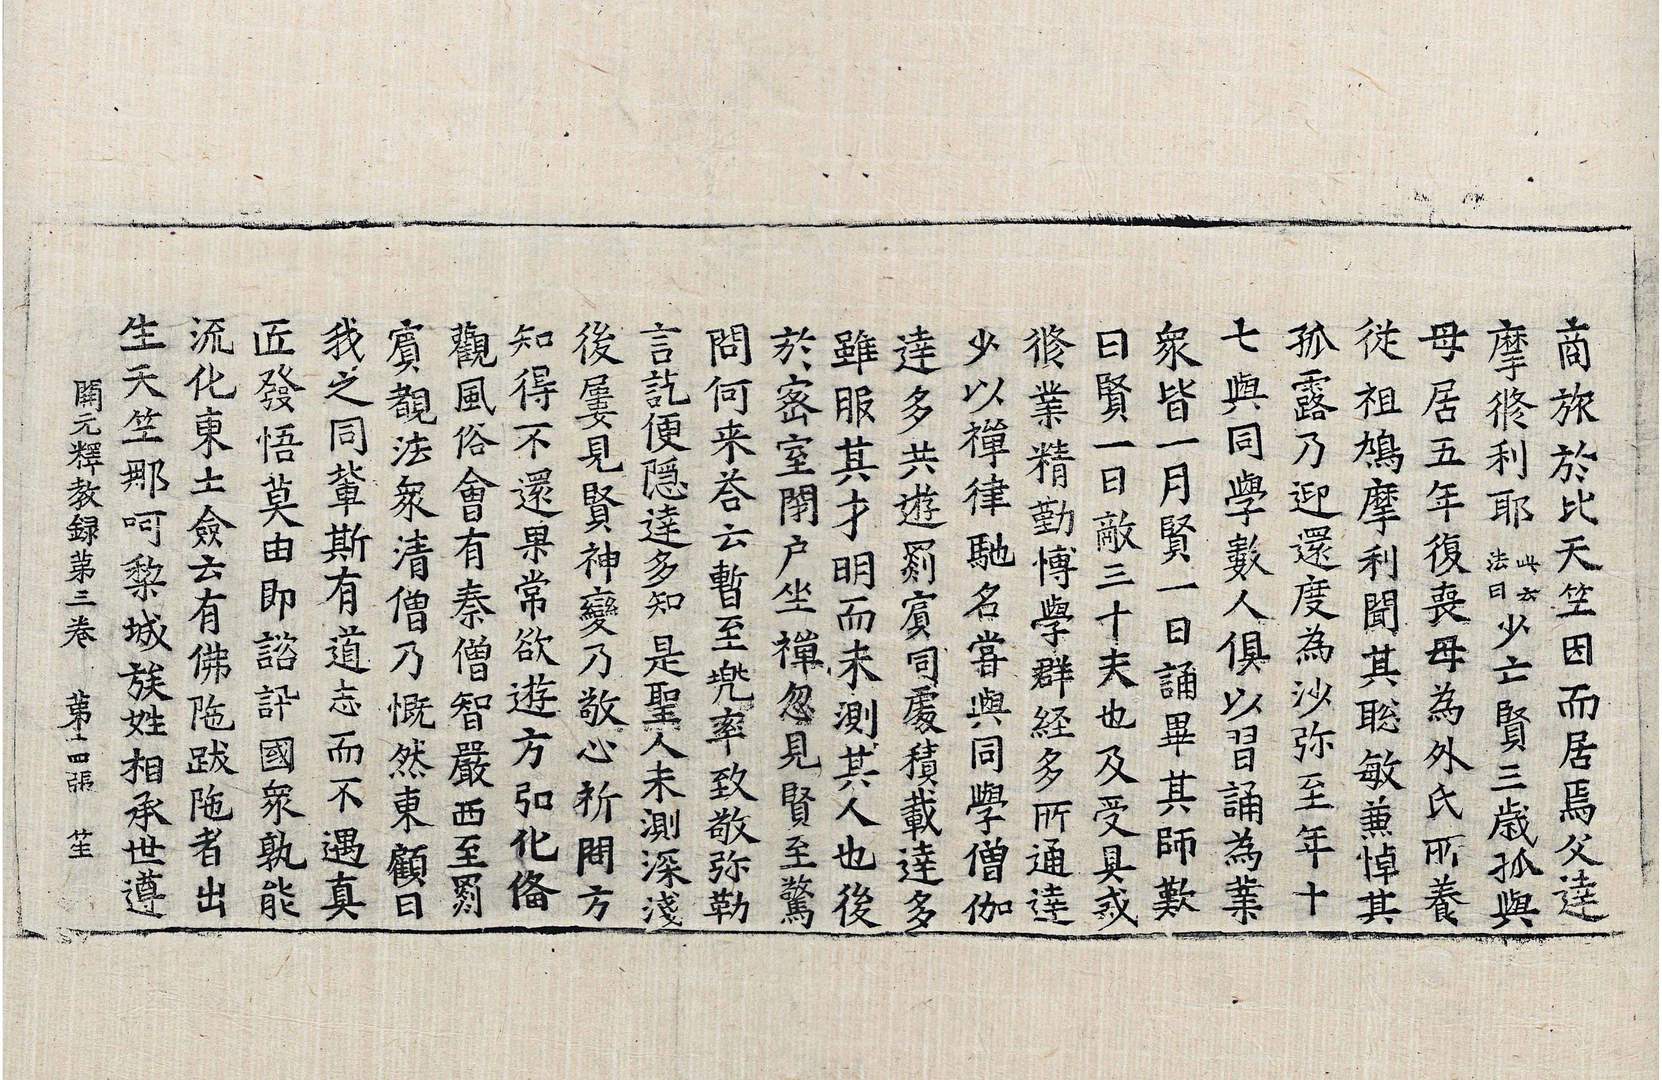 商旅於比天竺因而居焉父達
摩修利耶此云法日少亡賢三歲孤與
母居五年復喪母為外氏所養
從祖鳩摩利聞其聡敏兼悼其
孤露乃迎還度為沙弥至年十
七與同學數人俱以習誦為業
衆皆一月賢一日誦畢其師歎
曰賢一日敵三十夫也及受具戒
修業精勤博學群経多所通達
少以禅律馳名甞與同學僧伽
達多共遊罽賓同處積載達多
雖服其才明而未測其人也後
於密室閉户坐禅忽見賢至驚
問何来荅云暫至兜率致敬弥勒
言訖便隠達多知是聖人未測深淺
後屢見賢神變乃敬心祈問方
知得不還果常欲遊方弘化俻
觀風俗會有秦僧智嚴西至罽
賓覩法衆清僧乃慨然東顧曰
我之同輩斯有道志而不遇真
匠發悟莫由即諮訊國衆孰能
流化東土僉云有佛陁跋陁者出
生天竺那呵梨城族姓相承世遵
開元釋教録第三卷　第十四張　笙